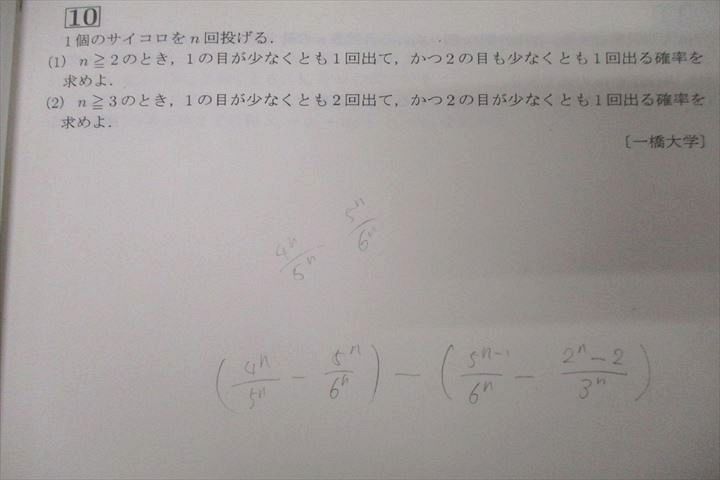 10
1個のサイコロをn回投げる.
(1) n≧2のとき,1の目が少なくとも1回出て,かつ2の目も少なくとも1回出る確率を
求めよ.
(2) n≧3のとき,1の目が少なくとも2回出て,かつ2の目が少なくとも1回出る確率を
求めよ.
〔一橋大学〕
4^n/5^n - 5^n/6^n
(4^n/5^n - 5^n/6^n) - (5^{n-1}/6^n - (2^n-2)/3^n)